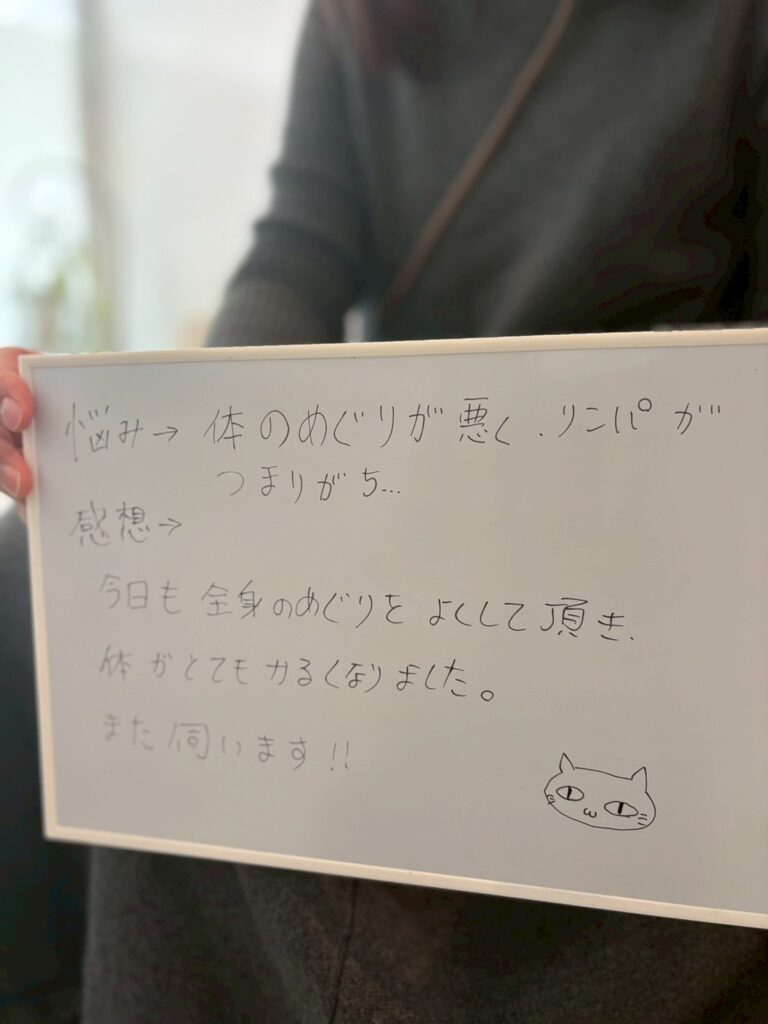 悩み→ 体のめぐりが悪く、リンパが
つまりがち...
感想→
今日も全身のめぐりをよくして頂き、
体がとてもかるくなりました。
また伺います!!